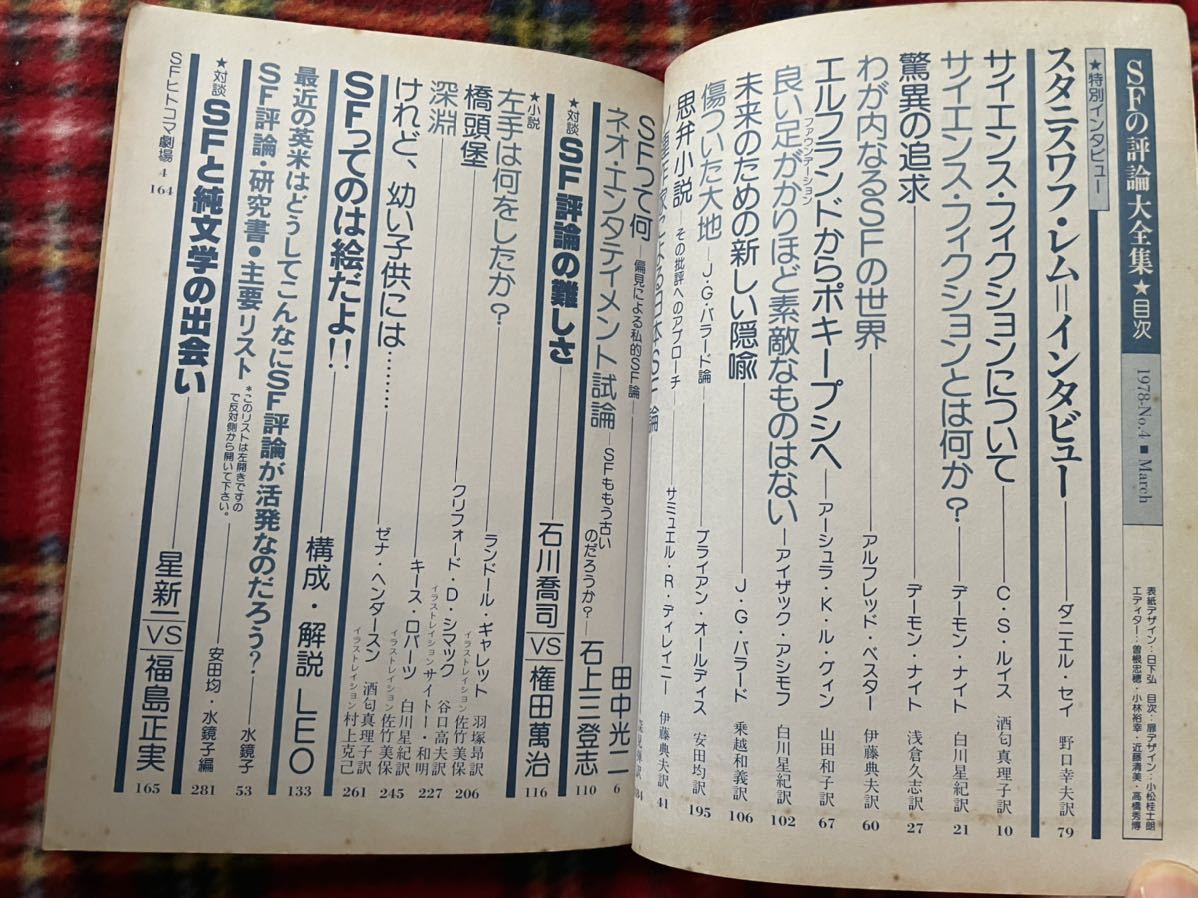 SFの評論大全集★目次
1978-No.4 ■ March
表紙デザイン：日下弘 目次・扉デザイン：小松桂士朗
エディター：曽根忠穂・小林裕幸・近藤清美・高橋秀博
★特別インタビュー
スタニスワフ・レム＝インタビュー ダニエル・セイ 野口幸夫訳 79
サイエンス・フィクションについて C・S・ルイス 酒匂真理子訳 10
サイエンス・フィクションとは何か？ デーモン・ナイト 白川星紀訳 21
驚異の追求 デーモン・ナイト 浅倉久志訳 27
わが内なるSFの世界 アルフレッド・ベスター 伊藤典夫訳 60
エルフランドからポキープシへ アーシュラ・K・ル・グィン 山田和子訳 67
ファウンデーション
良い足がかりほど素敵なものはない アイザック・アシモフ 白川星紀訳 102
未来のための新しい隠喩 J・G・バラード 乗越和義訳 106
傷ついた大地 J・G・バラード論 ブライアン・オールディス 安田均訳 195
思弁小説 その批評へのアプローチ サミュエル・R・ディレイニー 伊藤典夫訳 41
による日本SF論
SFって何 偏見による私的SF論 田中光二 6
ネオ・エンタティメント試論 SFももう古いのだろうか？ 石上三登志 110
★対談
SF評論の難しさ 石川喬司 VS 権田萬治 116
★小説
左手は何をしたか？ ランドール・ギャレット 羽塚昴訳 イラストレイション佐竹美保 206
橋頭堡 クリフォード・D・シマック 谷口高夫訳 イラストレイションサイトー・和明 227
深淵 キース・ロバーツ 白川星紀訳 イラストレイション佐竹美保 245
けれど、幼い子供には…… ゼナ・ヘンダースン 酒匂真理子訳 イラストレイション村上克己 261
SFってのは絵だよ!! 構成・解説 LEO 133
最近の英米はどうしてこんなにSF評論が活発なのだろう？ 水鏡子 53
SF評論・研究書・主要リスト *このリストは左開きですので反対側から開いて下さい。 安田均・水鏡子編 281
★対談
SFと純文学の出会い 星新一 VS 福島正実 165
SFヒトコマ劇場 4 164